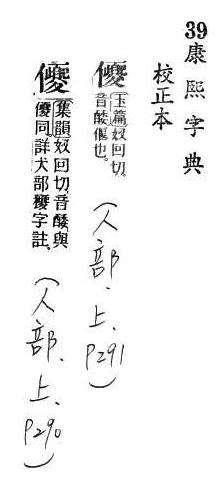 39
康熙字典
校正本
玉篇奴回切
音 也
(人部、上、P291)
集韻奴回切音 與
同詳犬部 字註
(人部、上、P290)